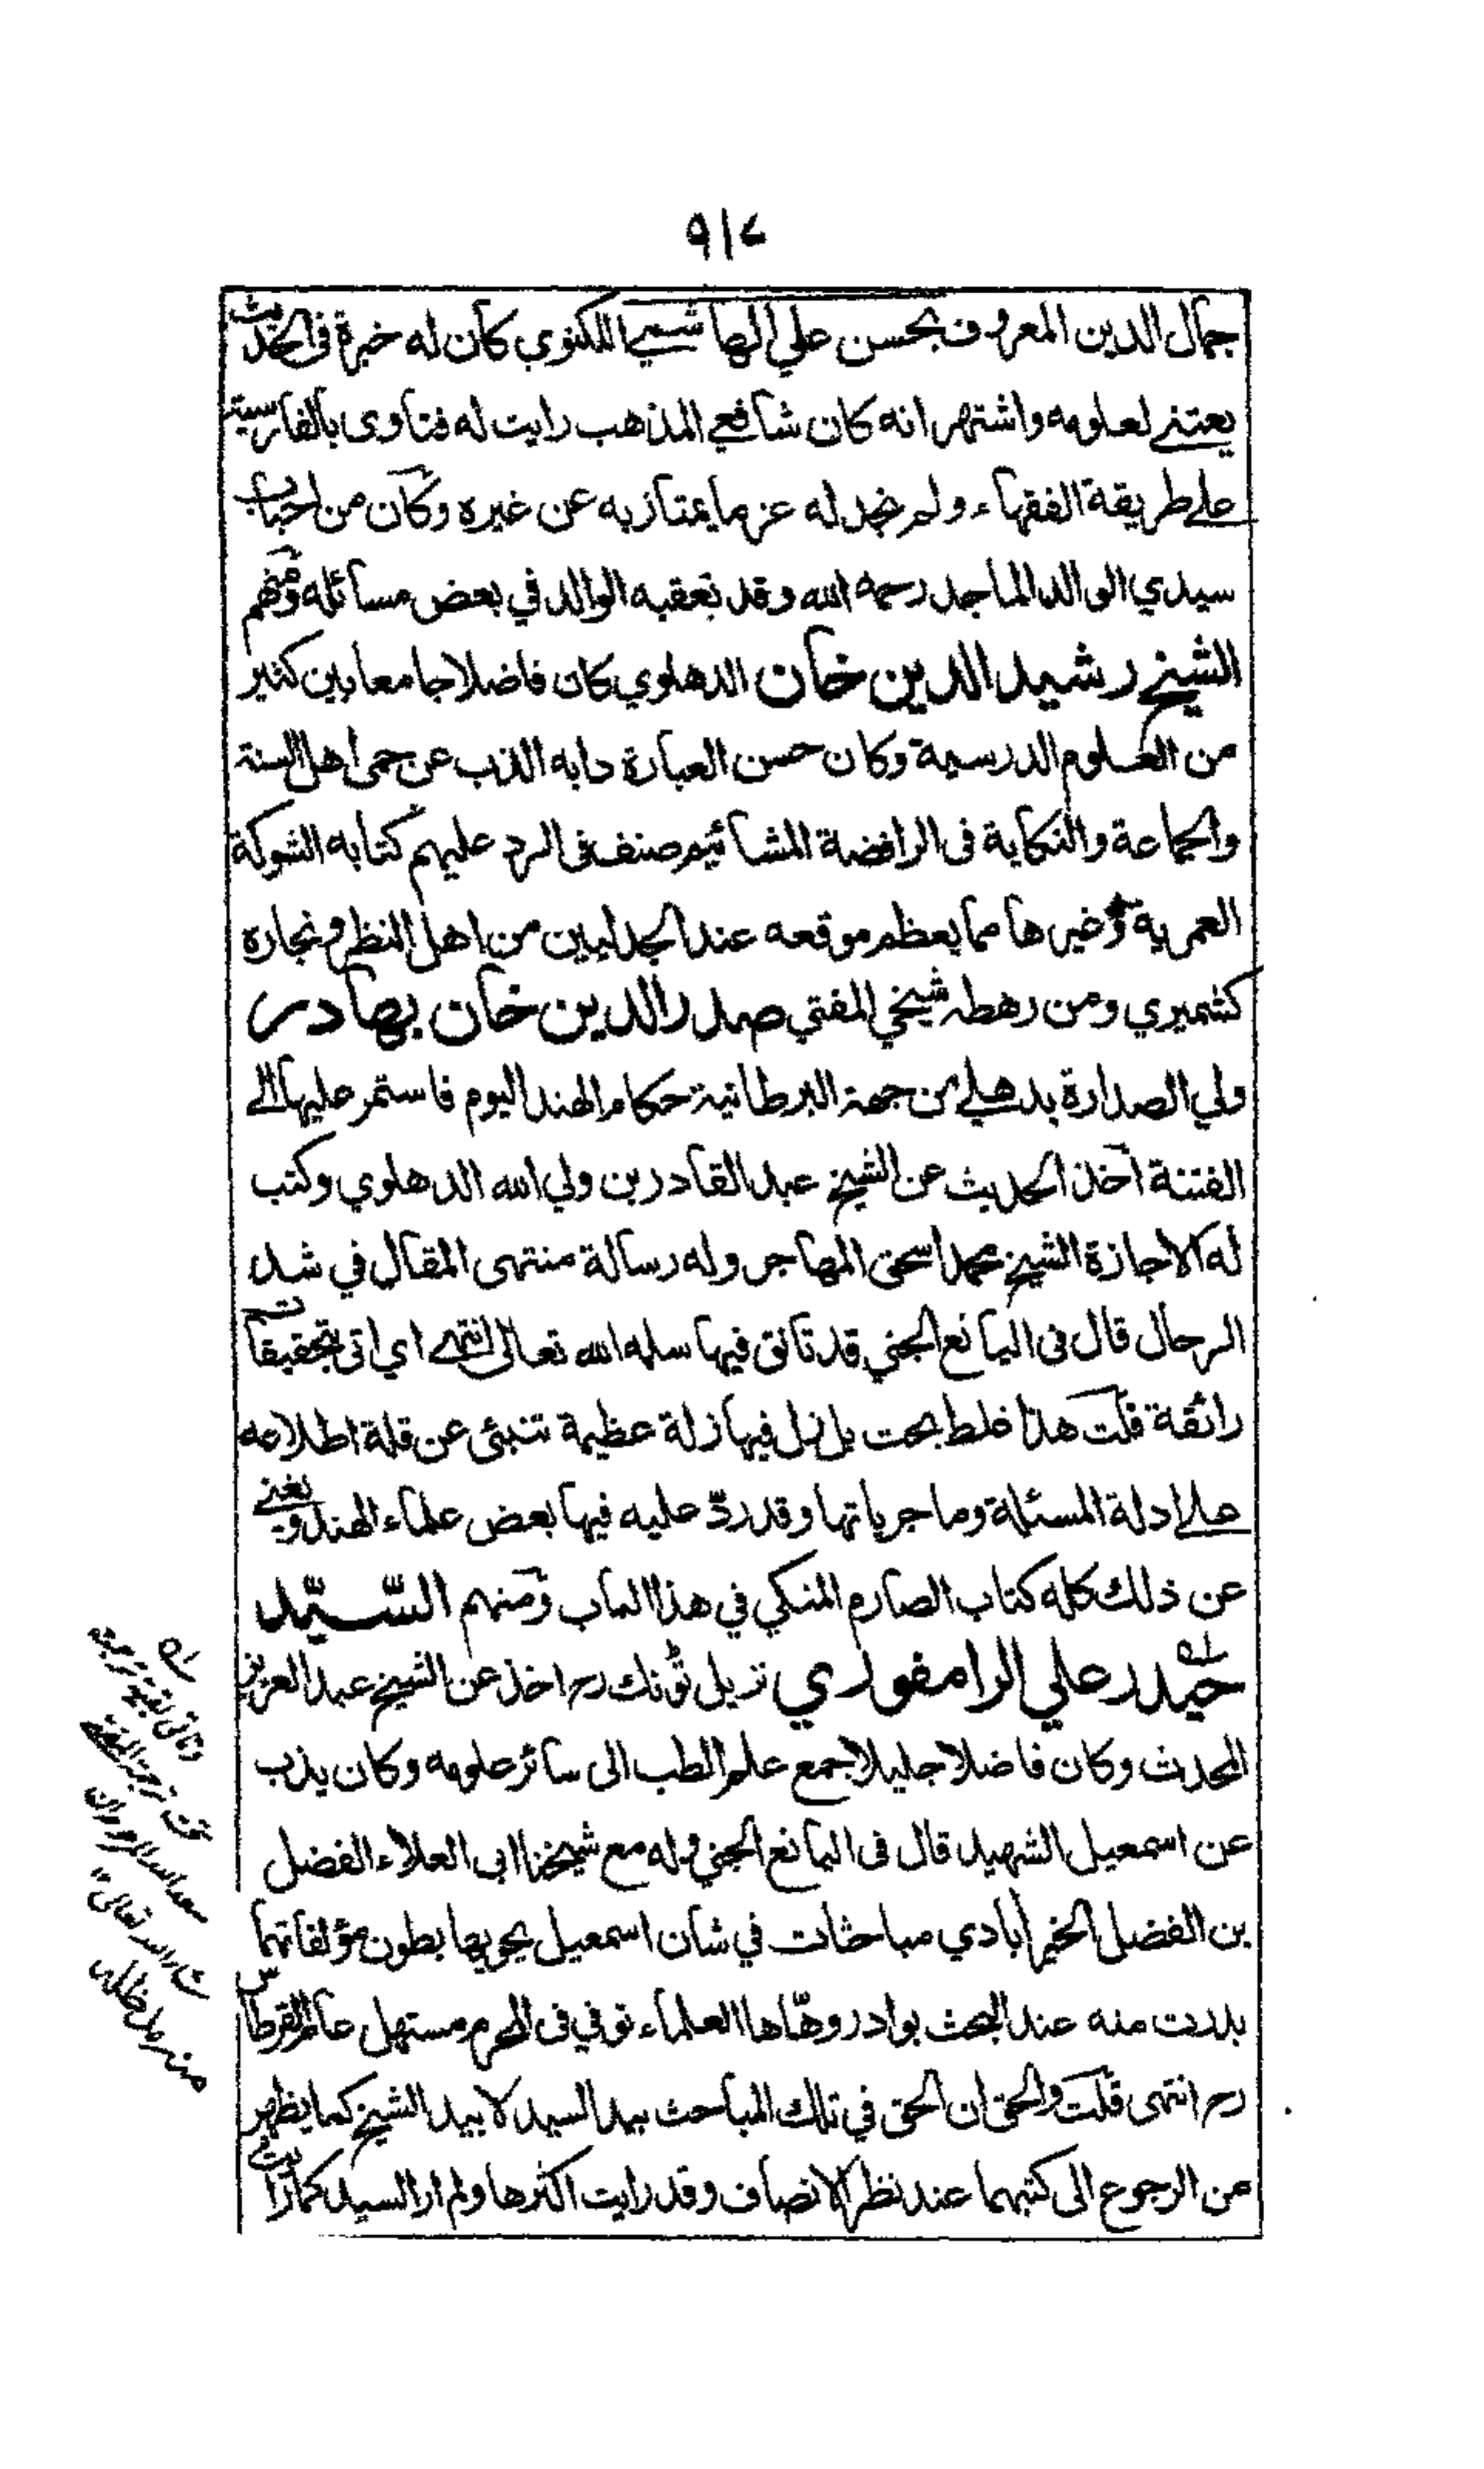 ٩١٧
جمال الدين المعروف بحسن علي الهاشمي اللكنوي كان له خبرة فى الحديث
يعتني لعلومه واشتهر انه كان شافعي المذهب رايت له فتاوى بالفارسية
على طريقة الفقهاء ولم نجد له عز ما يمتاز به عن غيره وكان من احباب
سيدي الوالد الماجد رحمه الله وقد تعقبه الوالد في بعض مسائله ومنهم
الشيخ رشيد الدين خان الدهلوي كان فاضلا جامعا بين كثير
من العلوم الدرسية وكان حسن العبارة دابه الذب عن حمى اهل السنة
والجماعة والنكاية فى الرافضة المشائيم صنف فى الرد عليهم كتابه الشوكة
العمرية وغيرها مما يعظم موقعه عند الجدليين من اهل النظر ونجاره
كشميري ومن رهطه شيخي المفتي صدر الدين خان بهادر
ولي الصدارة بدهلي من جهة البرطانية حكام الهند اليوم فاستمر عليها الى
الفتنة اخذ الحديث عن الشيخ عبد القادر بن ولي الله الدهلوي وكتب
له الاجازة الشيخ محمد اسحق المهاجر وله رسالة منتهى المقال في شد
الرحال قال فى اليانع الجني قد تانق فيها سلمه الله تعالى انتهى اي اتى بتحقيقات
رائقة قلت هذا غلط بحت بل زل فيها زلة عظيمة تنبئ عن قلة اطلاعه
على ادلة المسئلة وما جرياتها وقد ردّ عليه فيها بعض علماء الهند ويغني
عن ذلك كله كتاب الصارم المنكي في هذا الباب ومنهم السّيّد
حيدر علي الرامفوري نزيل ٹونك رح اخذ عن الشيخ عبد العزيز
المحدث وكان فاضلا جليلا جمع علم الطب الى سائر علومه وكان يذب
عن اسمعيل الشهيد قال فى اليانع الجني وله مع شيخنا ابى العلاء الفضل
بن الفضل الخيرآبادي مباحثات في شان اسمعيل يحويها بطون مؤلفاتهما
بدرت منه عند البحث بوادر وهّاها العلماء توفي فى المحرم مستهل عام القرطاس
رح انتهى قلت والحق ان الحق في تلك المباحث بيد السيد لا بيد الشيخ كما يظهر
من الرجوع الى كتبهما عند نظر الانصاف وقد رايت اكثرها ولم ار السيد كما رايت